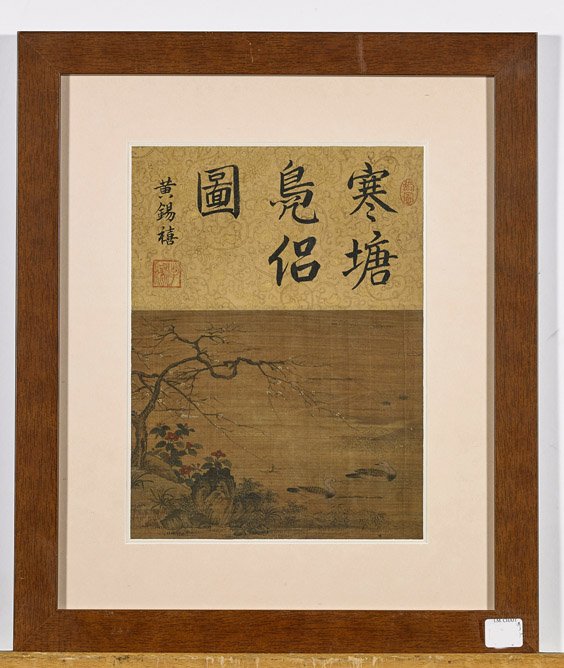 寒塘
鳧侶
圖
黃錫禧